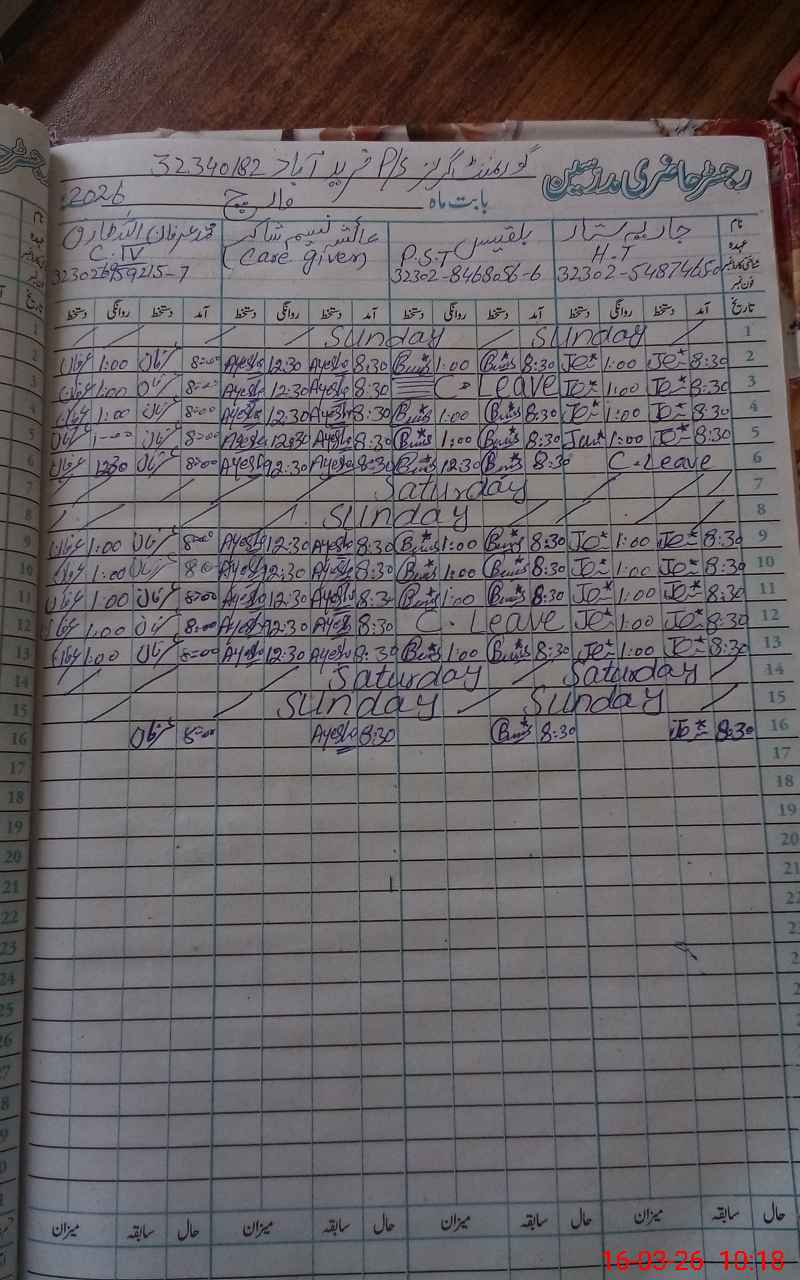 رجسٹر حاضری مدرسین
گورنمنٹ گرلز P/S فرید آباد 32340182
بابت ماہ مارچ 2026
نام جاریہ ستار بلقیس عائشہ نسیم شاکر
عہدہ H.T P.S.T (Care giver) C.IV
32302-8468056-6 323026959215-7
تاریخ آمد دستخط روانگی دستخط آمد دستخط روانگی دستخط آمد دستخط روانگی دستخط آمد دستخط روانگی دستخط
1 Sunday Sunday
2 8:30 Je 1:00 Je 8:30 1:00 8:30 Ayesha 12:30 Ayesha 8:00 عرفان 1:00 عرفان
3 8:30 Je 1:00 Je C. Leave 8:30 Ayesha 12:30 Ayesha 8:00 عرفان 1:00 عرفان
4 8:30 Je 1:00 Je 8:30 1:00 8:30 Ayesha 12:30 Ayesha 8:00 عرفان 1:00 عرفان
5 8:30 Je 1:00 8:30 1:00 8:30 Ayesha 12:30 Ayesha 8:00 عرفان 1:00 عرفان
6 C. Leave 8:30 12:30 8:30 Ayesha 12:30 Ayesha 8:00 عرفان 12:30 عرفان
7 Saturday
8 Sunday
9 8:30 Je 1:00 Je 8:30 1:00 8:30 Ayesha 12:30 Ayesha 8:00 عرفان 1:00 عرفان
10 8:30 Je 1:00 Je 8:30 1:00 8:30 Ayesha 12:30 Ayesha 8:00 عرفان 1:00 عرفان
11 8:30 Je 1:00 Je 8:30 1:00 8:30 Ayesha 12:30 Ayesha 8:00 عرفان 1:00 عرفان
12 8:30 Je 1:00 Je C. Leave 8:30 Ayesha 12:30 Ayesha 8:00 عرفان 1:00 عرفان
13 8:30 Je 1:00 Je 8:30 1:00 8:30 Ayesha 12:30 Ayesha 8:00 عرفان 1:00 عرفان
14 Saturday Saturday
15 Sunday Sunday
16 8:30 Je 8:30 8:30 Ayesha 8:00 عرفان
17
18
19
20
21
22
23
24
25
26
حال سابقہ میزان حال سابقہ میزان حال سابقہ میزان حال سابقہ میزان
16-03-26 10:18